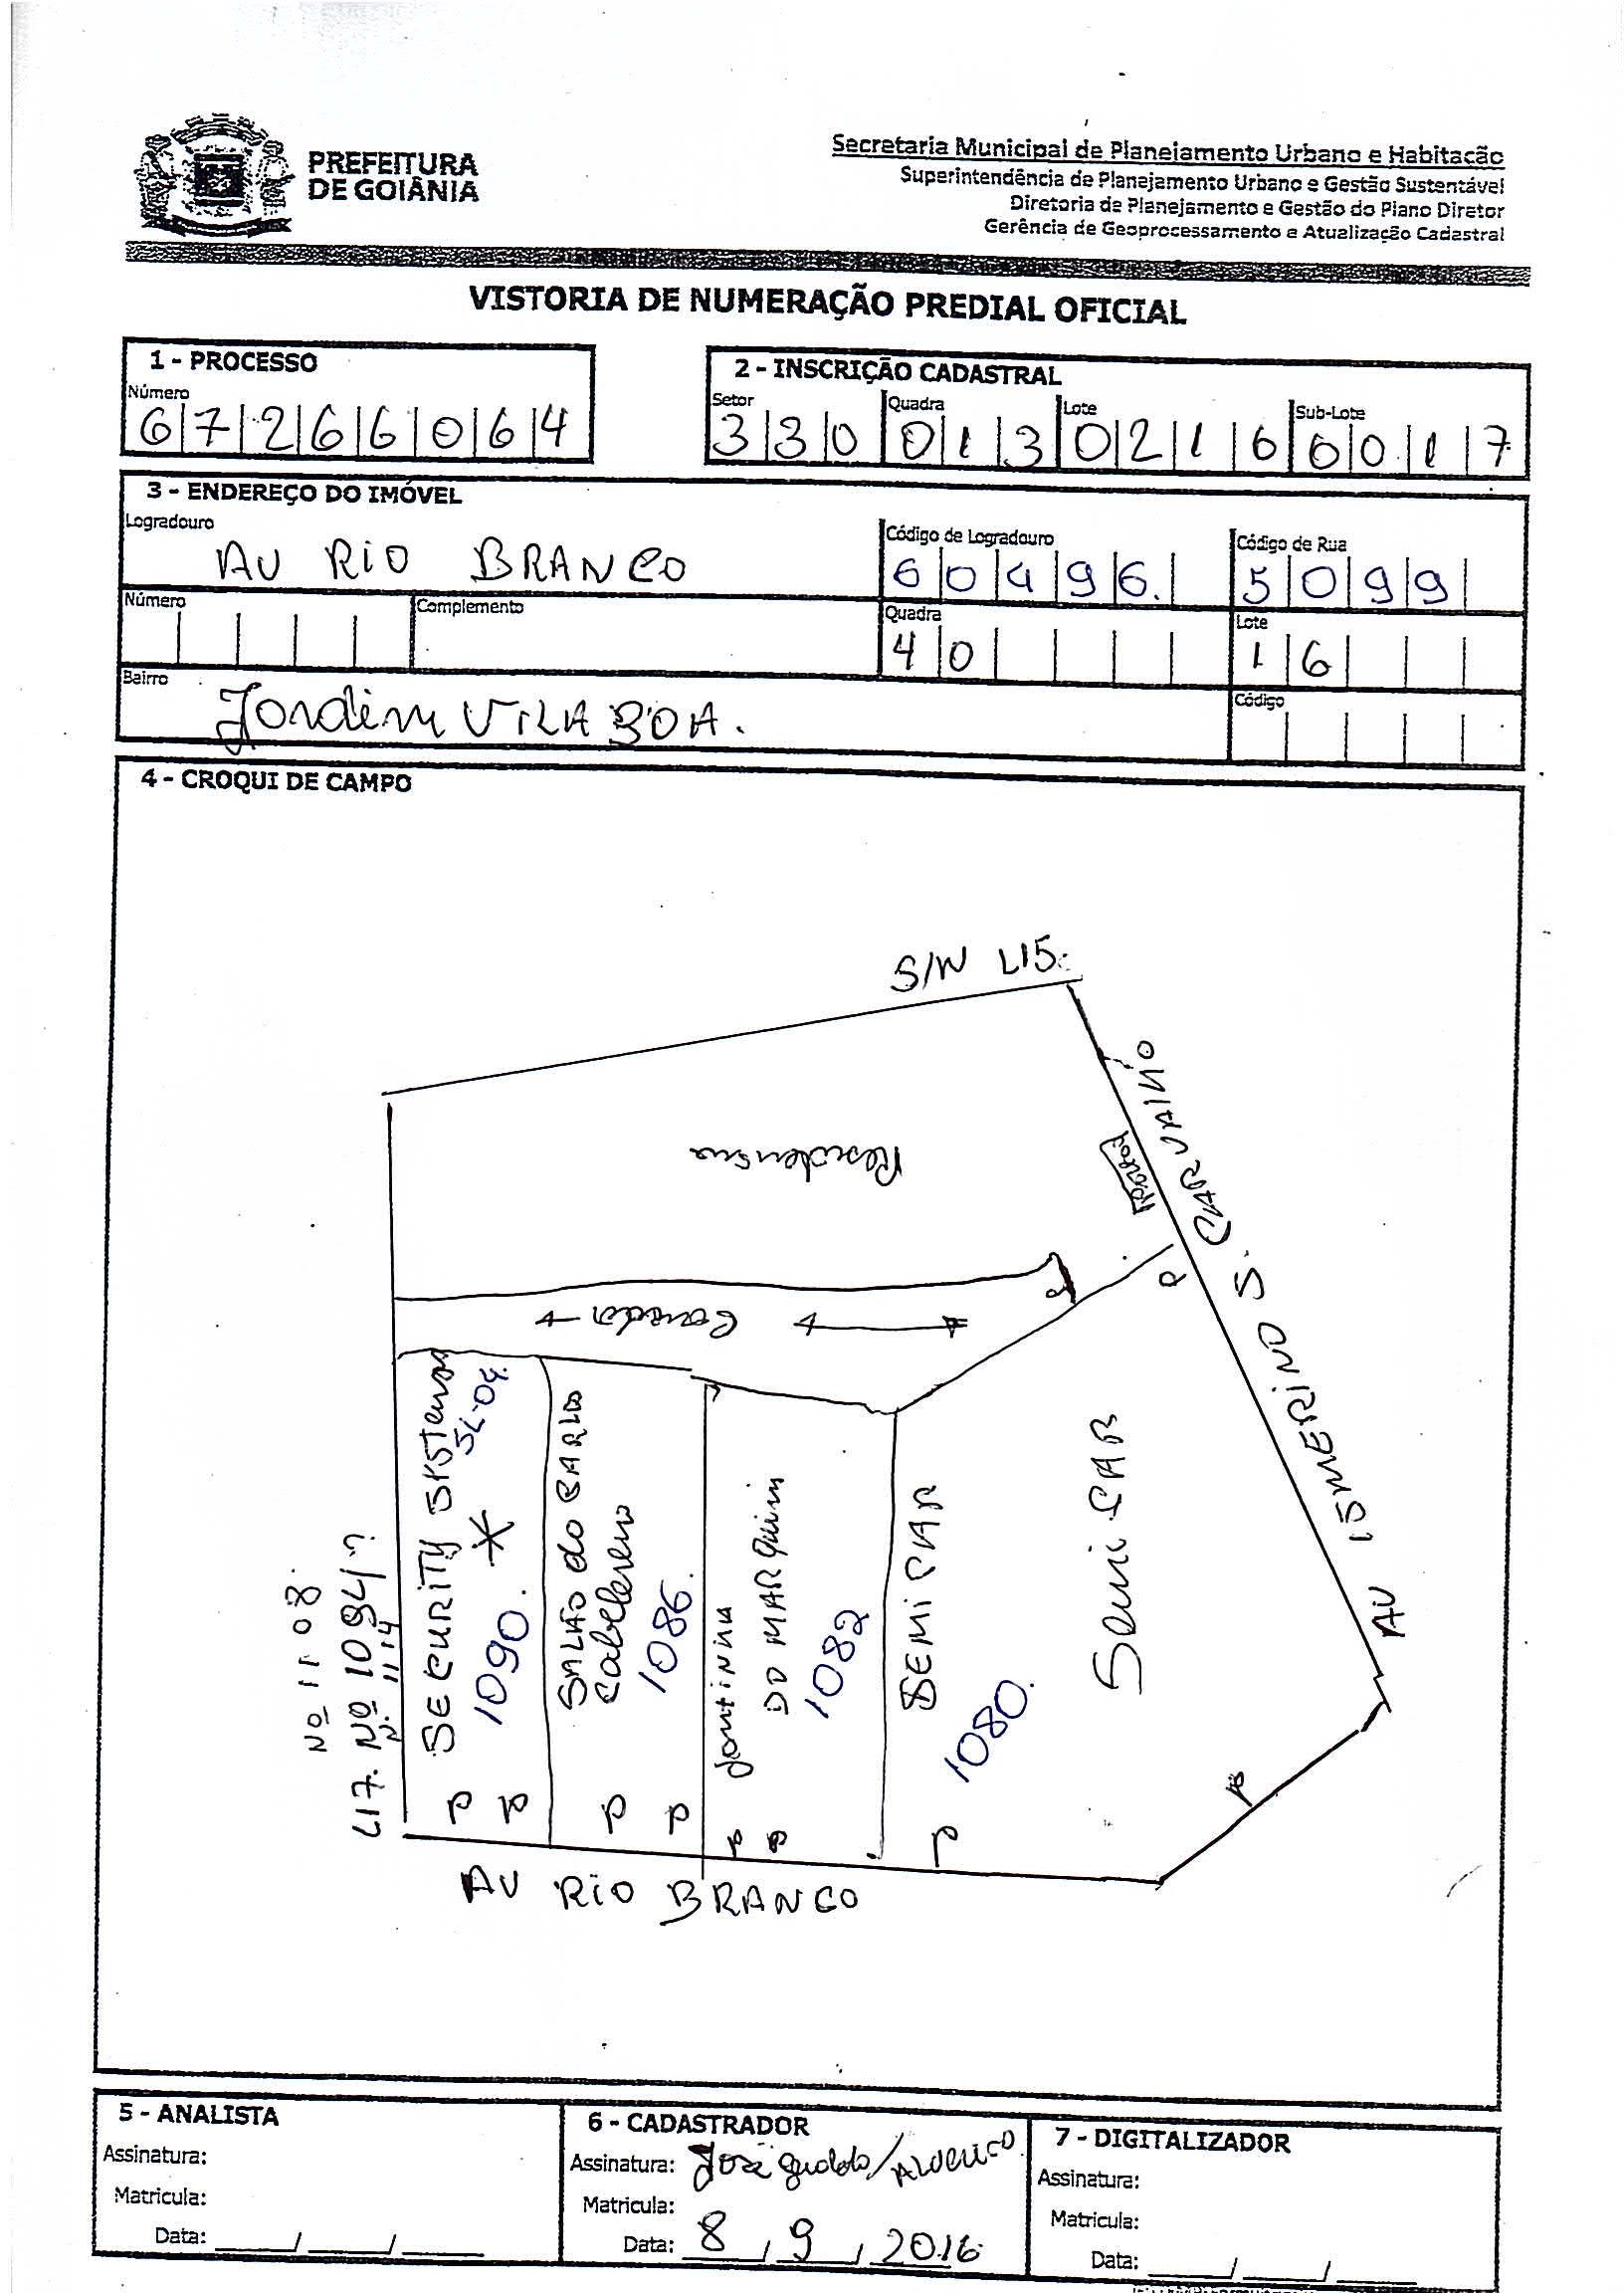 PREFEITURA
DE GOIÂNIA
Secretaria Municipal de Planejamento Urbano e Habitação
Superintendência de Planejamento Urbano e Gestão Sustentável
Diretoria de Planejamento e Gestão do Plano Diretor
Gerência de Geoprocessamento e Atualização Cadastral
VISTORIA DE NUMERAÇÃO PREDIAL OFICIAL
1 - PROCESSO
Número
67266064
2 - INSCRIÇÃO CADASTRAL
Setor Quadra Lote Sub-Lote
330 013 0216 0017
3 - ENDEREÇO DO IMÓVEL
Logradouro
AV RIO BRANCO
Código de Logradouro
60496.
Código de Rua
5099
Número
Complemento
Quadra
40
Lote
16
Bairro
Jardim VILA BOA.
Código
4 - CROQUI DE CAMPO
S/N L15.
Residensia
AV ISMERINO S. CARVALHO
P
P
SECURITY SYSTEMS
SL-04.
1090.
P P
SALÃO do CARLOS
Cabelereiro
1086.
P P
DO MARQUIM
1082
P P
SEMI PAR
1080.
P
Semi PAR
P
Nº 1108.
L17. Nº 1094?
N. 1114
AV RIO BRANCO
5 - ANALISTA
Assinatura:
Matricula:
Data: ____/____/____
6 - CADASTRADOR
Assinatura: José
Matricula:
Data: 8 / 9 / 2016
7 - DIGITALIZADOR
Assinatura:
Matricula:
Data: ____/____/____